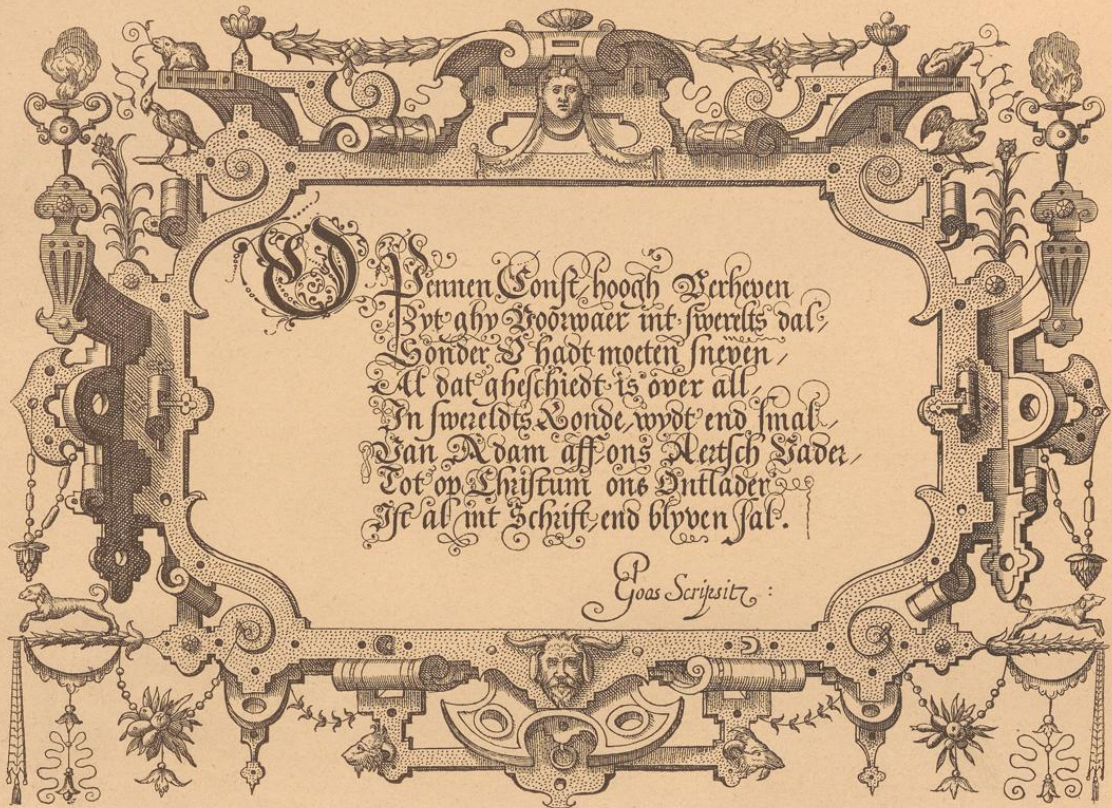 O Pennen Const, hoogh Verheven
Zyt ghy Voorwaer int swerelts dal,
Sonder V hadt moeten sneven,
Al dat gheschiedt is over all,
In swereldts Ronde, wydt end smal,
Van Adam aff ons Aertsch Vader,
Tot op Christum ons Ontlader
Ist al int Schrift, end blyven sal.
Goos Scripsit :